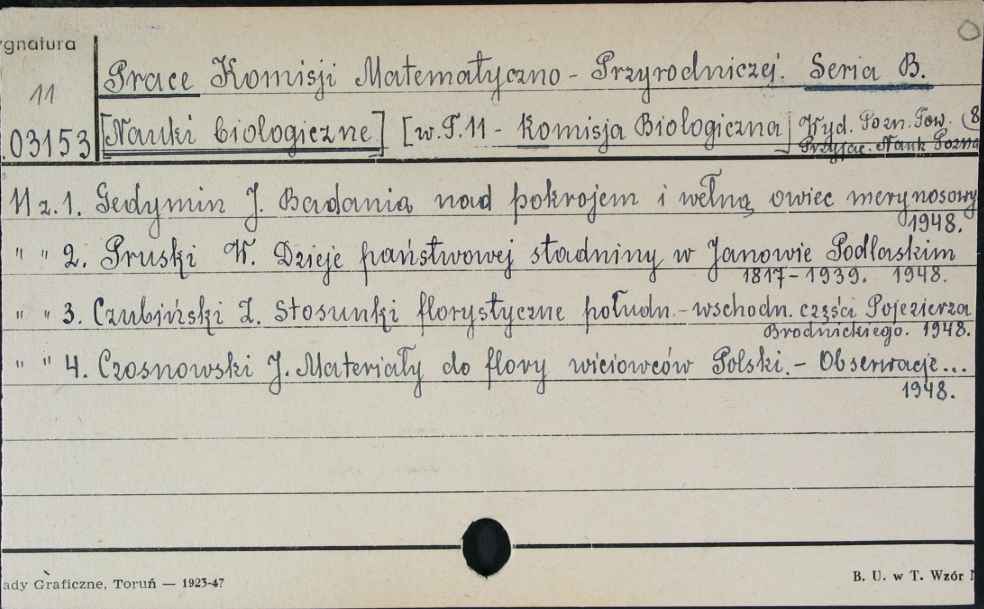 ygnatura
11
.03153
Prace Komisji Matematyczno - Przyrodniczej. Seria B.
[Nauki biologiczne] [w.T.11 - Komisja Biologiczna] Wyd. Pozn. Tow. (8
Przyjac. Nauk Pozna
11 z. 1. Gedymin J. Badania nad pokrojem i wełną owiec merynosowy
1948.
" " 2. Pruski W. Dzieje państwowej stadniny w Janowie Podlaskim
1817-1939. 1948.
" " 3. Czubiński Z. Stosunki florystyczne połudn.-wschodn. części Pojezierza
Brodnickiego. 1948.
" " 4. Czosnowski J. Materiały do flory wiciowców Polski.- Obserwacje...
1948.
ady Graficzne, Toruń — 1923-47
B. U. w T. Wzór